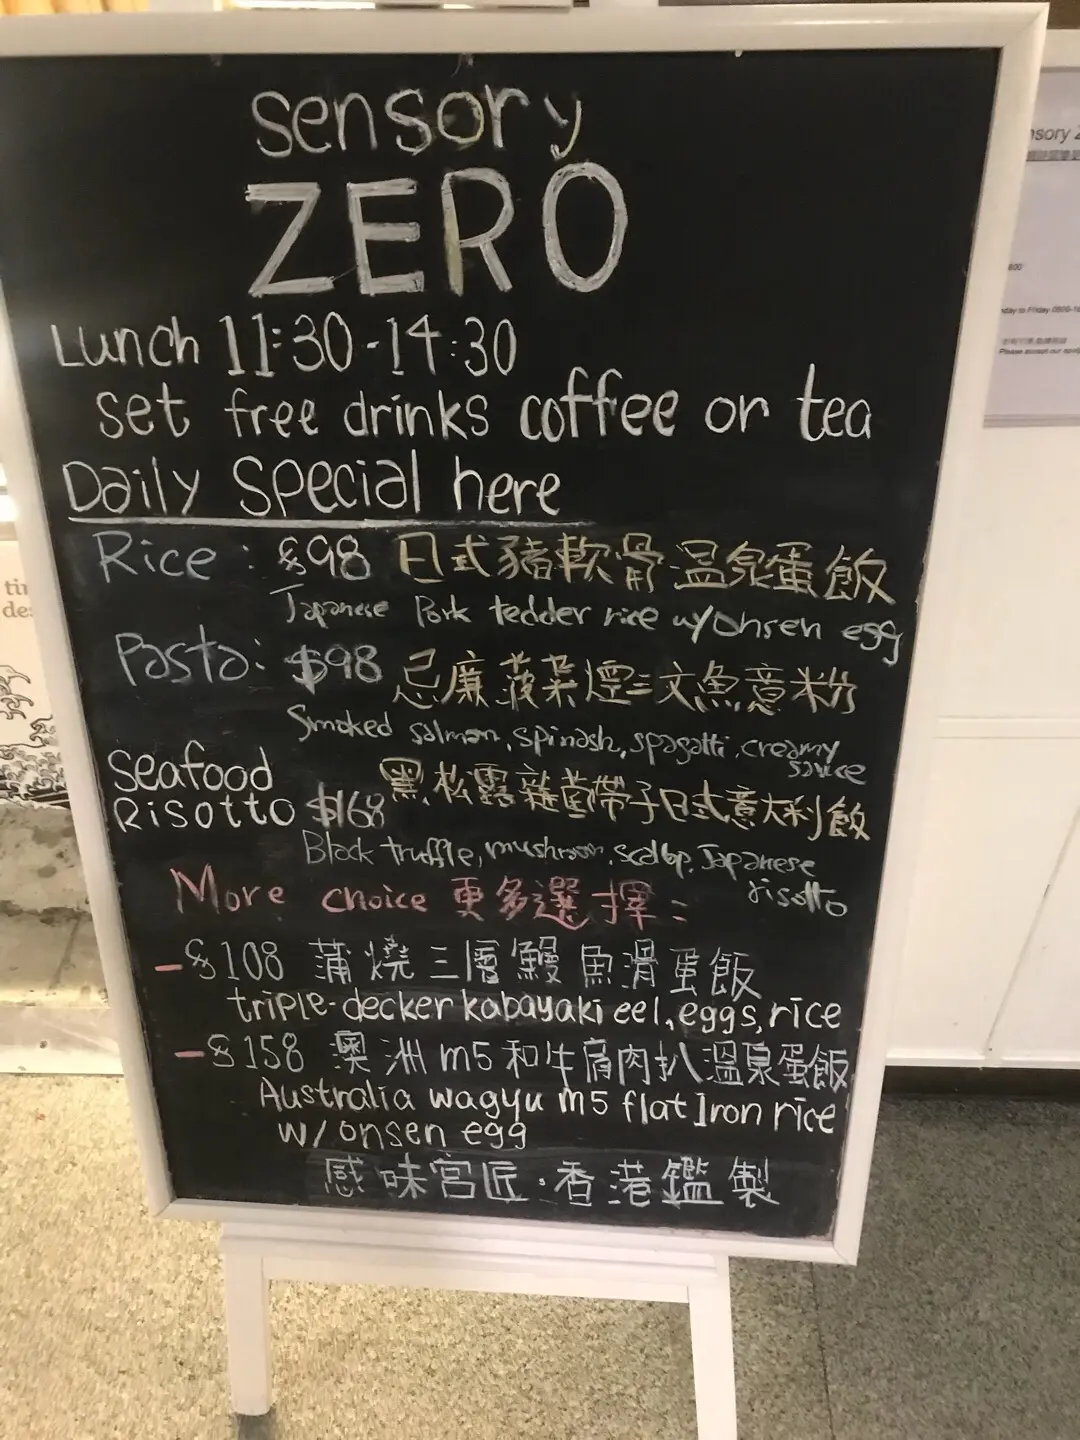 sensory
ZERO
Lunch 11:30-14:30
set free drinks coffee or tea
Daily Special here
Rice: $98 日式豬軟骨溫泉蛋飯
Japanese Pork tedder rice w/onsen egg
Pasta: $98 忌廉菠菜煙三文魚意粉
Smoked salmon, spinash, spagatti, creamy
sauce
Seafood
Risotto $168 黑松露雜菌帶子日式意大利飯
Black truffle, mushroom, scallop, Japanese
risotto
More choice 更多選擇:
- $108 蒲燒三層鰻魚滑蛋飯
triple-decker kabayaki eel, eggs, rice
- $158 澳洲m5和牛肩肉扒溫泉蛋飯
Australia wagyu m5 flat Iron rice
w/ onsen egg
感味宮匠·香港鑑製
nsory Z
day to Friday 0800-1
Please accept our
tin
de